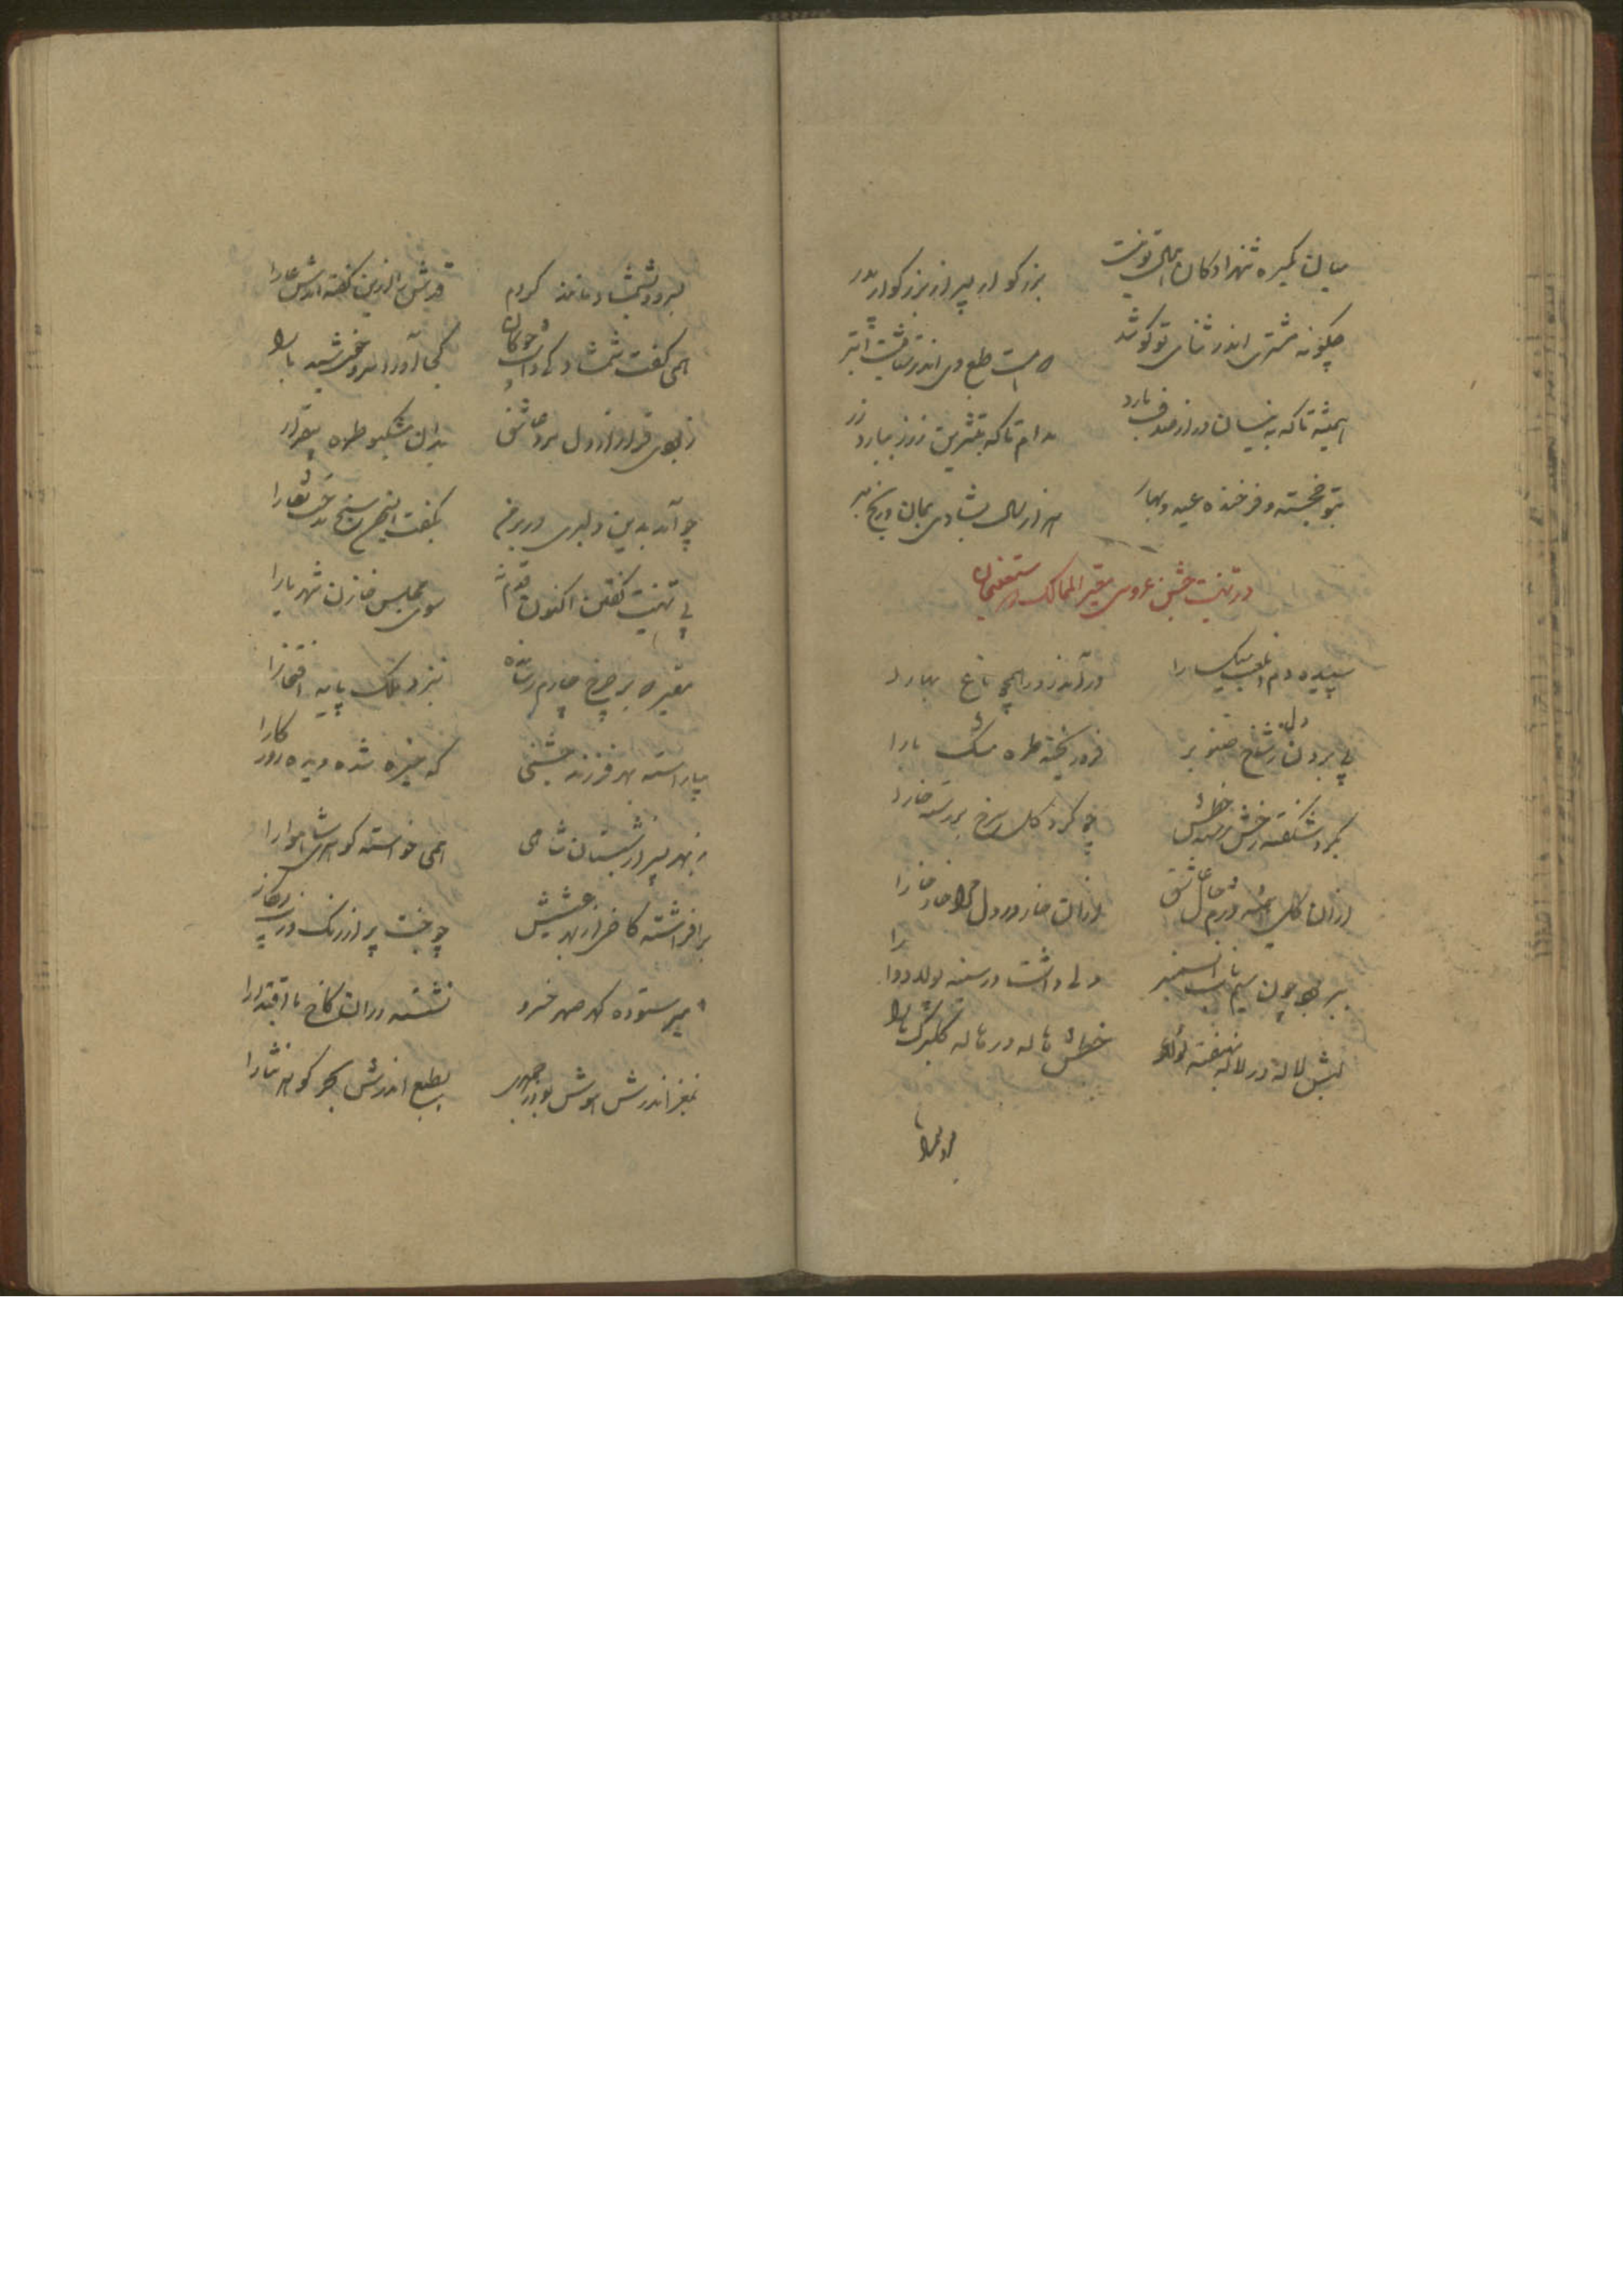 میان یکسره شهزادگان همال تو نیست
بزرگوار پسر از بزرگوار پدر
چگونه مشتری اندر ثنای تو کوشد
طبع وی اندر ثنایت ابتر
همیشه تا که به نیسان در از صدف بارد
مدام تا که بتشرین زرز ببارد زر
بتو خجسته و فرخنده عید و بهار
هزار سال بشادی بمان و رنج مبر
در تهنیت جشن عروسی معیر الممالک
سپیده دم
درآمد ز در همچو باغ بهارا
پی بردن دل ز شاخ صنوبر
فرو ریخته طره مشک بارا
بگرد شکفته رخش بر خطش
چو گرد گل سرخ بررسته خارا
ازان گل همه درم جان عاشق
ازان خار در دل مرا خار خارا
ببر بود چون سیم ناب
دلی داشت در سینه پولاد
لبش لاله در لاله نهفته لؤلؤ
خطش هاله در هاله گلبرگ
بسرو و بشمشاد مانند کردم
قدش را و زین گفته آمدش عارا
همی گفت شمشاد کی داشت چوگان
کجا آورد سرو خورشید بارا
ز بوی قرار از دل برد عاشق
بدان مشکبو طره بیقرارا
چو آمد بدین دلبری در بر من
بگفت
پی تهنیت گفتن اکنون قدم نه
سوی مجلس خازن شهریارا
معیر که بر چرخ چارم رسانده
بنزد ملک پایه افتخارا
بیاراسته بهر فرزند جشنی
که خیره شده دیده روزگارا
ز بهر پسر از شبستان شاهی
همی خواسته گوهری شاهوارا
برافراشته کاخی از بهر عشرتش
چو بخت پر از رنگ و زیب و نگارا
امیر ستوده گهر صهر خسرو
نشسته در آن کاخ با اقتدارا
بمغز اندرش هوش بوذرجمهری
بطبع اندرش بحر گوهر نثارا